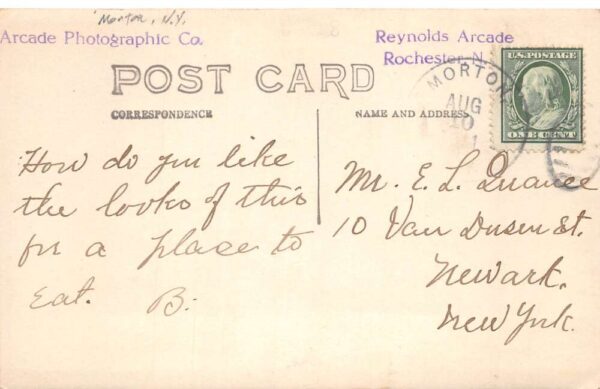 Morton, N.Y.
Arcade Photographic Co.
Reynolds Arcade
Rochester N
POST CARD
CORRESPONDENCE
NAME AND ADDRESS
MORTON
AUG
10
1
U.S. POSTAGE
ONE CENT
How do you like
the looks of this
for a place to
Eat. B.
Mr. E. L. Quance
10 Van Dusen St.
Newark,
New York.